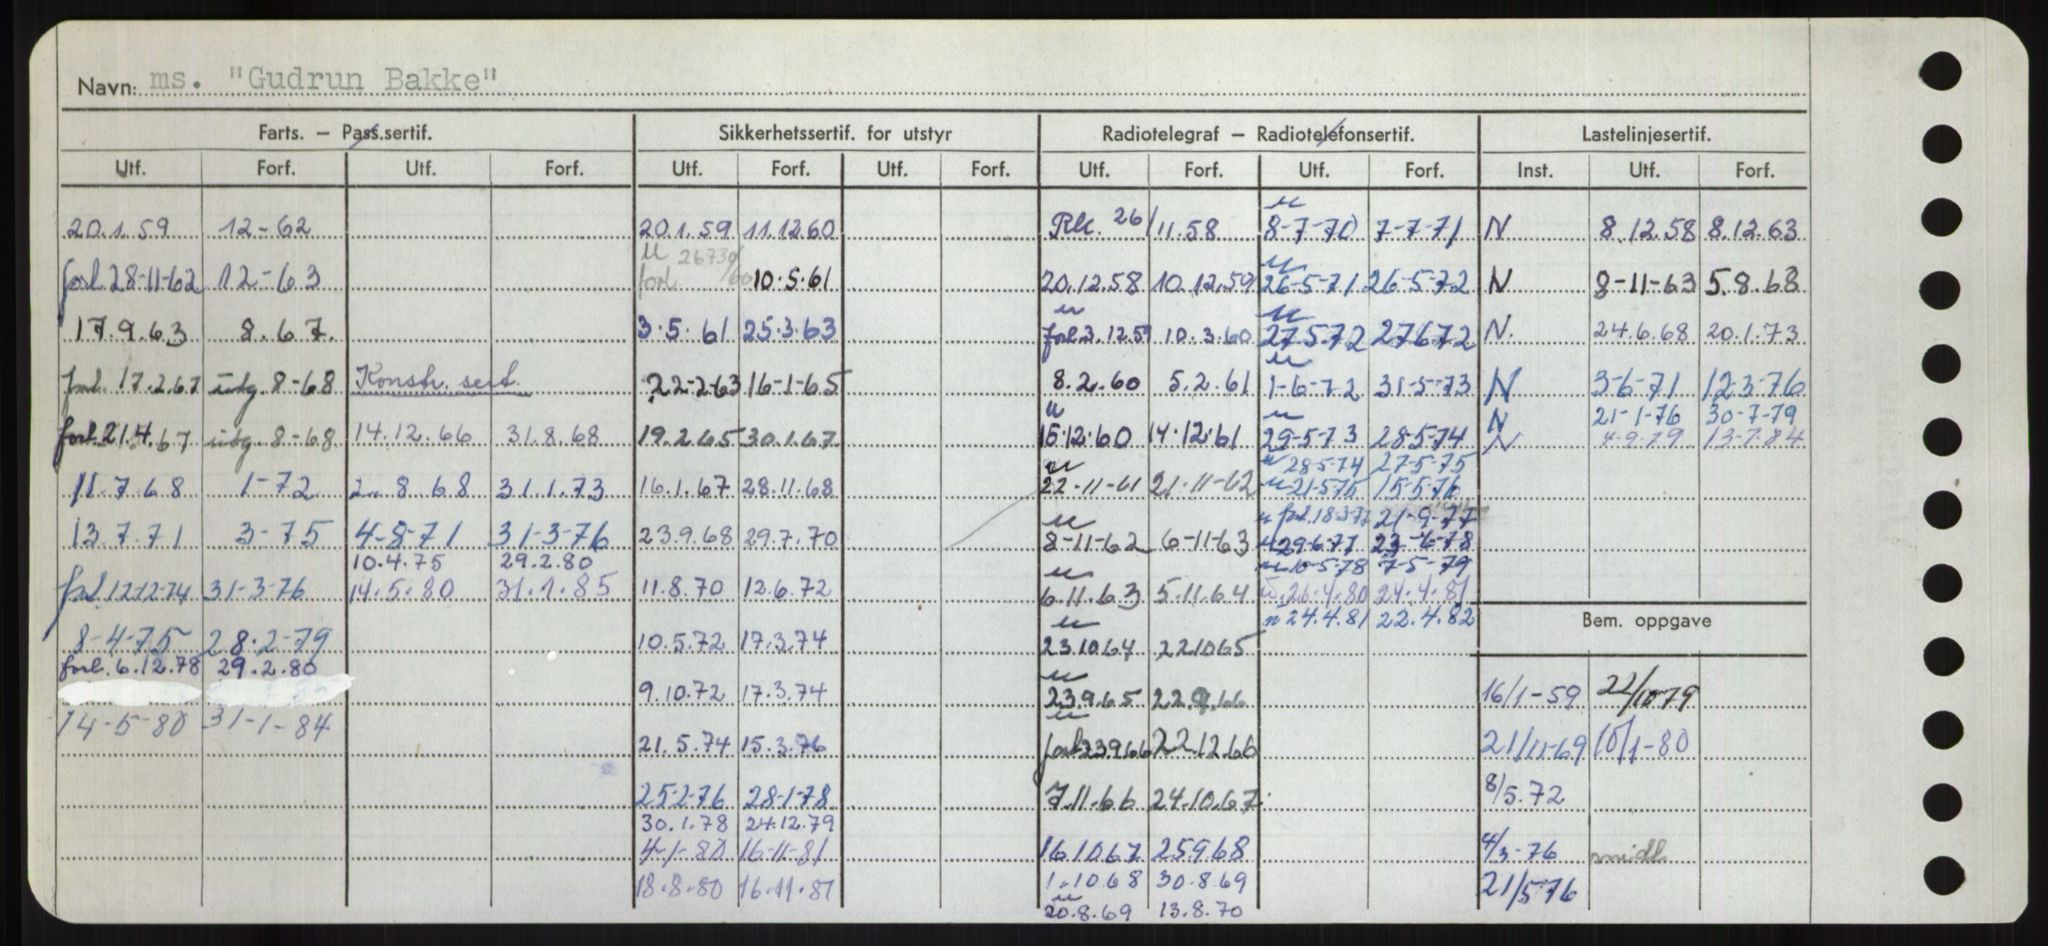 Navn: ms. "Gudrun Bakke"
Farts. – Pass.sertif. Sikkerhetssertif. for utstyr Radiotelegraf – Radiotelefonsertif. Lastelinjesertif.
Utf. Forf. Utf. Forf. Utf. Forf. Utf. Forf. Utf. Forf. Utf. Forf. Inst. Utf. Forf.
20.1.59 12-62 20.1.59 11.12.60 26/11.58 8-7-70 7-7-71 N 8.12.58 8.12.63
forl. 28-11-62 12-63 forl. 10.5.61 20.12.58 10.12.59 26-5-71 26-5-72 N 8-11-63 5.8.68
17.9.63 8.67. 3.5.61 25.3.63 forl. 3.12.59 10.3.60 27.5.72 27.6.72 N. 24.6.68 20.1.73
forl. 17.2.67 utg. 8-68 Konstr. sert. 22-2-63 16-1-65 8.2.60 5.2.61 1-6-72 31-5-73 N 3-6-71 12.3-76
N 21-1-76 30-7-79
forl. 21.4.67 utg. 8-68 14.12.66 31.8.68 19.2.65 30.1.67 15.12.60 14.12.61 29-5-73 28-5-74 N 4-9-79 13-7-84
28-5-74 27-5-75
11.7.68 1-72 2.8.68 31.1.73 16.1.67 28.11.68 22-11-61 21-11-62 21-5-75 15-5-76
forl. 18-3-77 21-9-77
13.7.71 3-75 4-8-71 31-3-76 23.9.68 29.7.70 8-11-62 6-11-63 29-6-77 23-6-78
10.4.75 29.2.80 10-5-78 7-5-79
forl. 12-12-74 31-3-76 14.5.80 31.1.85 11.8.70 12.6.72 6.11.63 5.11.64 26.4.80 24.4.81
24.4.81 22.4.82
Bem. oppgave
8-4-75 28.2-79 10.5.72 17.3.74 23.10.64 22.10.65
forl. 6.12.78 29.2.80
9.10.72 17.3.74 23.9.65 22.9.66 16/1-59 22/10-79
14-5-80 31-1-84
21.5.74 15.3.76 forl. 23.9.66 22.12.66 21/11-69 10/1-80
25-2-76 28-1-78 7.11.66 24.10.67 8/5.72
30.1.78 24.12.79
4-1-80 16-11-81 16.10.67 25.9.68 4/3-76 midl.
18.8.80 16.11.81 1.10.68 30.8.69 21/5-76
20.8.69 13.8.70